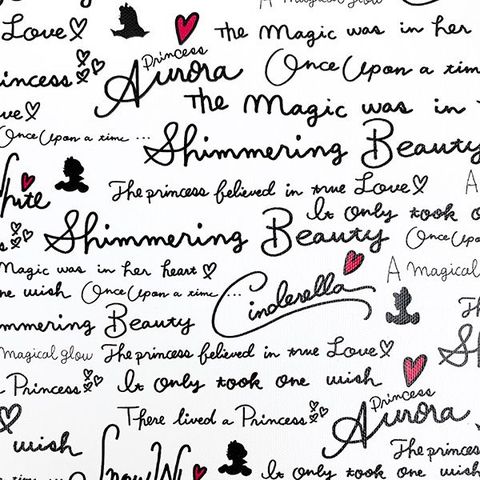 A magical glow
Love The Magic was in her
Princess
Aurora Once Upon a time
princess
The Magic was in
Love
Once Upon a time ... Shimmering Beauty
White The princess believed in true Love A
It only took o
Shimmering Beauty Once Upo
Magic was in her heart A Magical
one wish Once Upon a time ... Cinderella
mmering Beauty Th
magical glow The princess believed in true Love Sh
Princess It only took one wish
Princess
There lived a Princess Aurora
wish The princess
Snow W
time ... It only took one wish